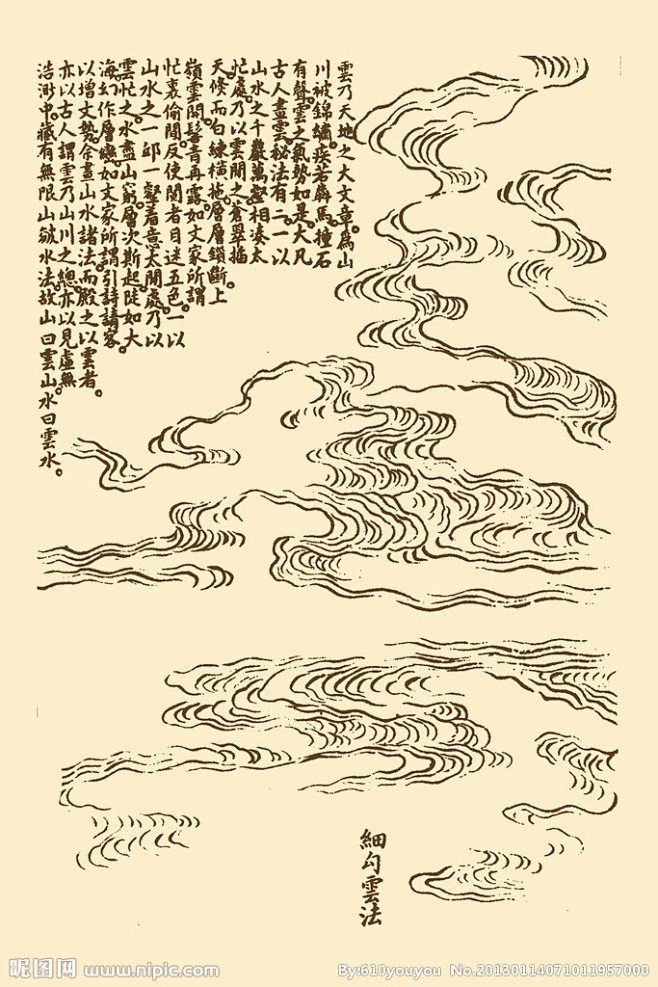 雲乃天地之大文章。為山
川被錦繡。疾若奔馬。撞石
有聲。雲之氣勢如是。大凡
古人畫雲秘法有二。一以
山水之千巖萬壑相湊太
忙處。乃以雲閒之。蒼翠插
天。倏而白練橫拖。層層鎖斷。上
嶺雲開。髻青再露。如文家所謂
忙裏偷閒。反使閱者目迷五色。一以
山水之一邱一壑着意太閒處。乃以
雲忙之。水盡山窮。層次斯起。陡如大
海。幻作層巒。如文家所謂引詩請客。
以增文勢。余畫山水諸法。而殿之以雲者。
亦以古人謂雲乃山川之總。亦以見虛無
浩渺中。藏有無限山皴水法。故山曰雲山。水曰雲水。
細勾雲法
昵图网 www.nipic.com
By:610youyou No.20130114071011957000